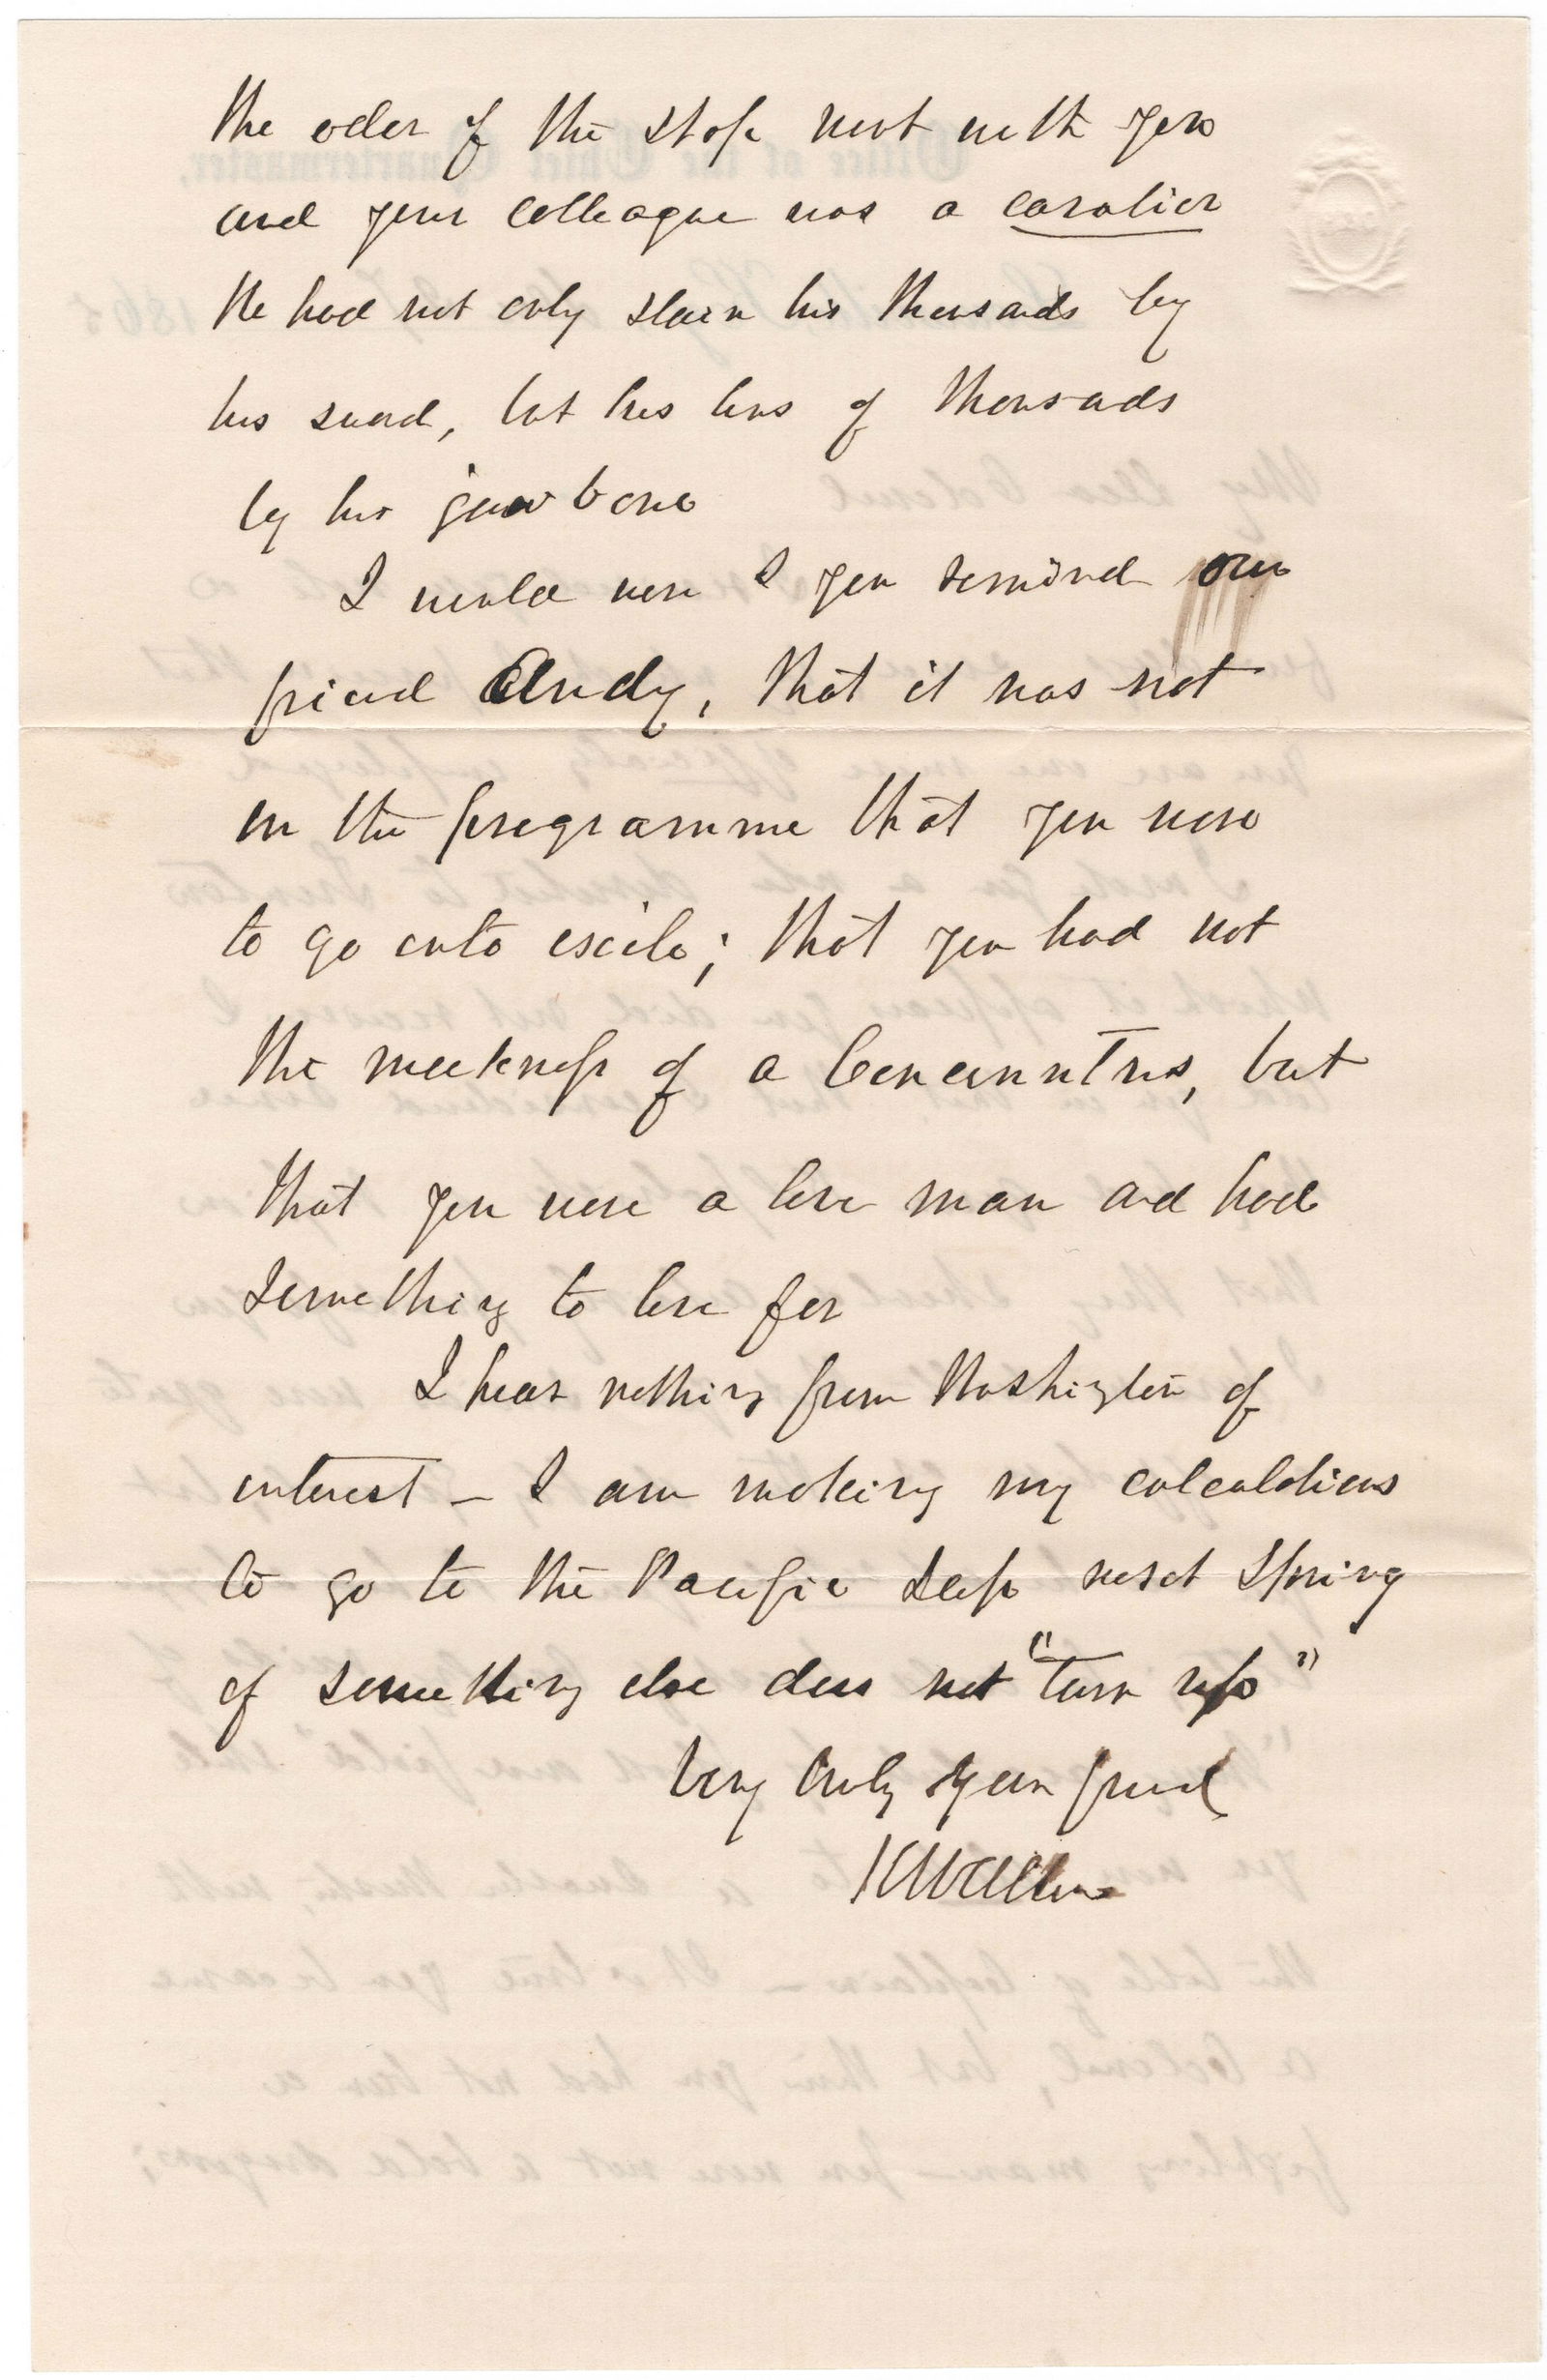 the oder of the shop went with you
and your colleague was a cavalier
He had not only slain his thousands by
his sword, but his tens of thousands
by his jawbone
I would were I you remind our
friend Andy, that it was not
in the programme that you were
to go into exile; that you had not
the meekness of a Cincinnatus, but
that you were a live man and had
something to live for
I hear nothing from Washington of
interest — I am making my calculations
to go to the Pacific Slope next Spring
if something else does not "turn up"
Very truly your friend